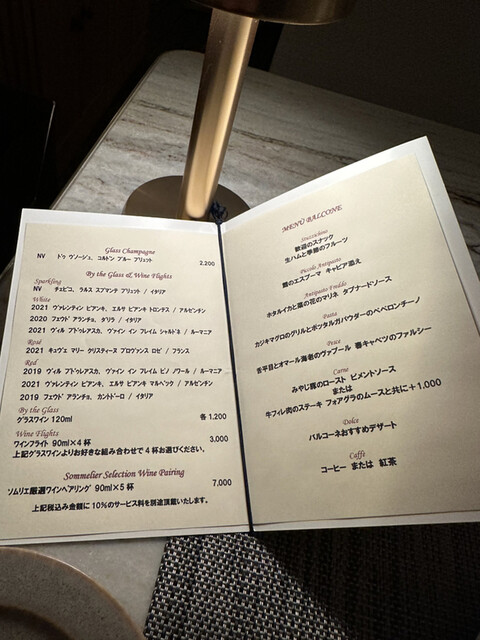 Glass Champagne
NV ドゥ ヴノージュ、コルドン ブルー ブリュット 2,200
By the Glass & Wine Flights
Sparkling
NV チェビコ、ラルス スプマンテ ブリュット / イタリア
White
2021 ヴァレンティン ビアンキ、エルサ ビアンキ トロンテス / アルゼンチン
2020 フェウド アランチョ、ダリラ / イタリア
2021 ヴィル ブドゥレアスカ、ヴァイン イン フレイム シャルドネ / ルーマニア
Rosé
2021 キュヴェ マリー クリスティーヌ プロヴァンス ロゼ / フランス
Red
2019 ヴィル ブドゥレアスカ、ヴァイン イン フレイム ピノ ノワール / ルーマニア
2021 ヴァレンティン ビアンキ、エルサ ビアンキ マルベック / アルゼンチン
2019 フェウド アランチョ、カントドーロ / イタリア
By the Glass
グラスワイン 120ml 各 1,200
Wine Flights
ワインフライト 90ml×4杯 3,000
上記グラスワインよりお好きな組み合わせで 4 杯お選びください。
Sommelier Selection Wine Pairing
ソムリエ厳選ワインペアリング 90ml×5杯 7,000
上記税込み金額に 10%のサービス料を別途頂戴いたします。
MENÙ BALCONE
Stuzzichino
歓迎のスナック
生ハムと季節のフルーツ
Piccolo Antipasto
鯛のエスプーマ キャビア添え
Antipasto Freddo
ホタルイカと菜の花のマリネ タプナードソース
Pasta
カジキマグロのグリルとボッタルガパウダーのペペロンチーノ
Pesce
舌平目とオマール海老のヴァプール 春キャベツのファルシー
Carne
みやじ豚のロースト ピメントソース
または
牛フィレ肉のステーキ フォアグラのムースと共に＋1,000
Dolce
バルコーネおすすめデザート
Caffè
コーヒー または 紅茶